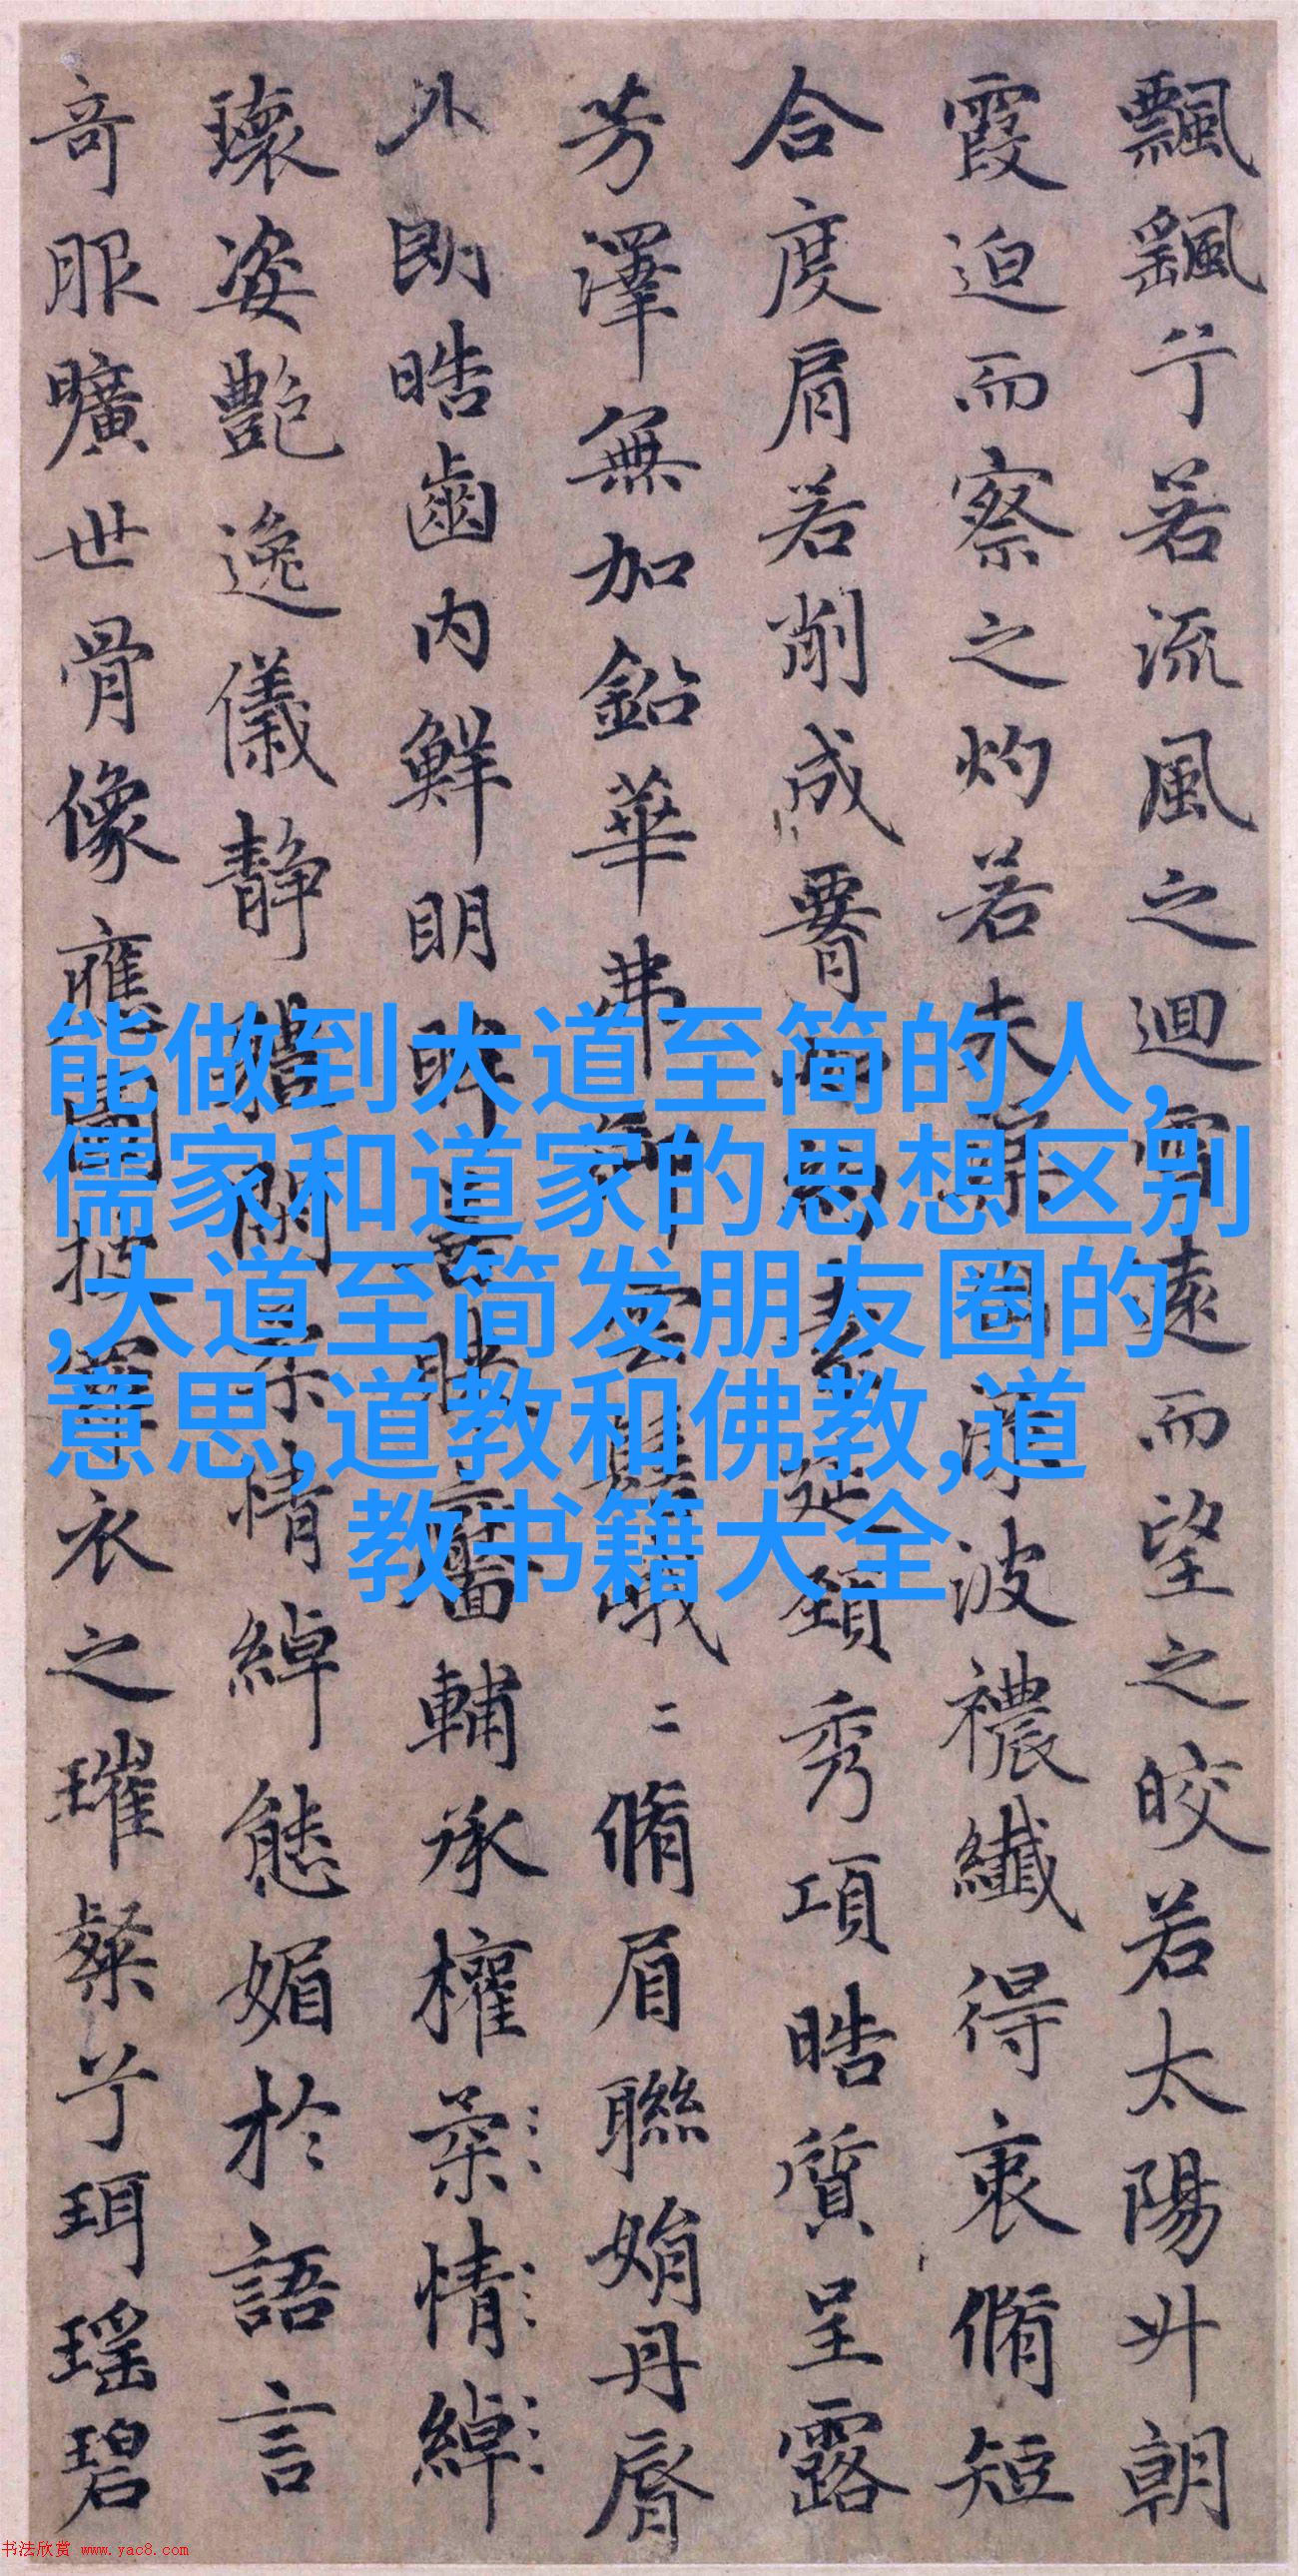 飄飖兮若流風之迴雪遠而望之皎若太陽升朝
霞迫而察之灼若
波襛纖得衷脩短
合度肩若削成
延頸秀項皓質呈露
芳澤無加鉛華弗
二脩眉聯娟丹脣
外朗皓齒內鮮明眸善睞
輔承權柔情綽
瓌姿艷逸儀静體閑柔情綽態媚於語言
奇服曠世骨像應圖披
衣之璀粲兮珥瑶碧
能做到大道至简的人,
儒家和道家的思想区别
,大道至简发朋友圈的
意思,道教和佛教,道
教书籍大全
书法欣赏 www.yac8.com